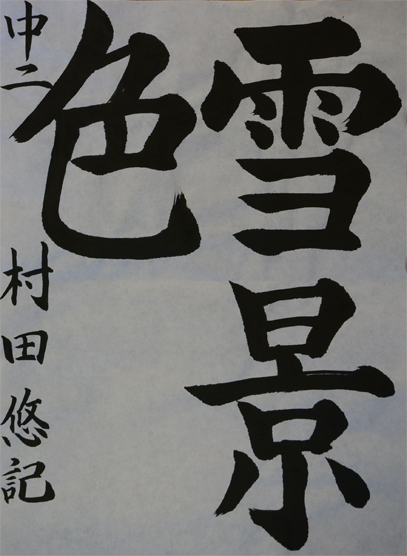 雪景
色
中二 村田悠記